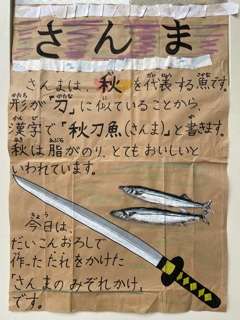 さんま
さんまは、秋を代表する魚です。
形が「刀」に似ていることから、
漢字で「秋刀魚(さんま)」と書きます。
秋は脂がのり、とてもおいしいと
いわれています。
今日は、
だいこんおろしで
作ったたれをかけた
「さんまのみぞれかけ」
です。